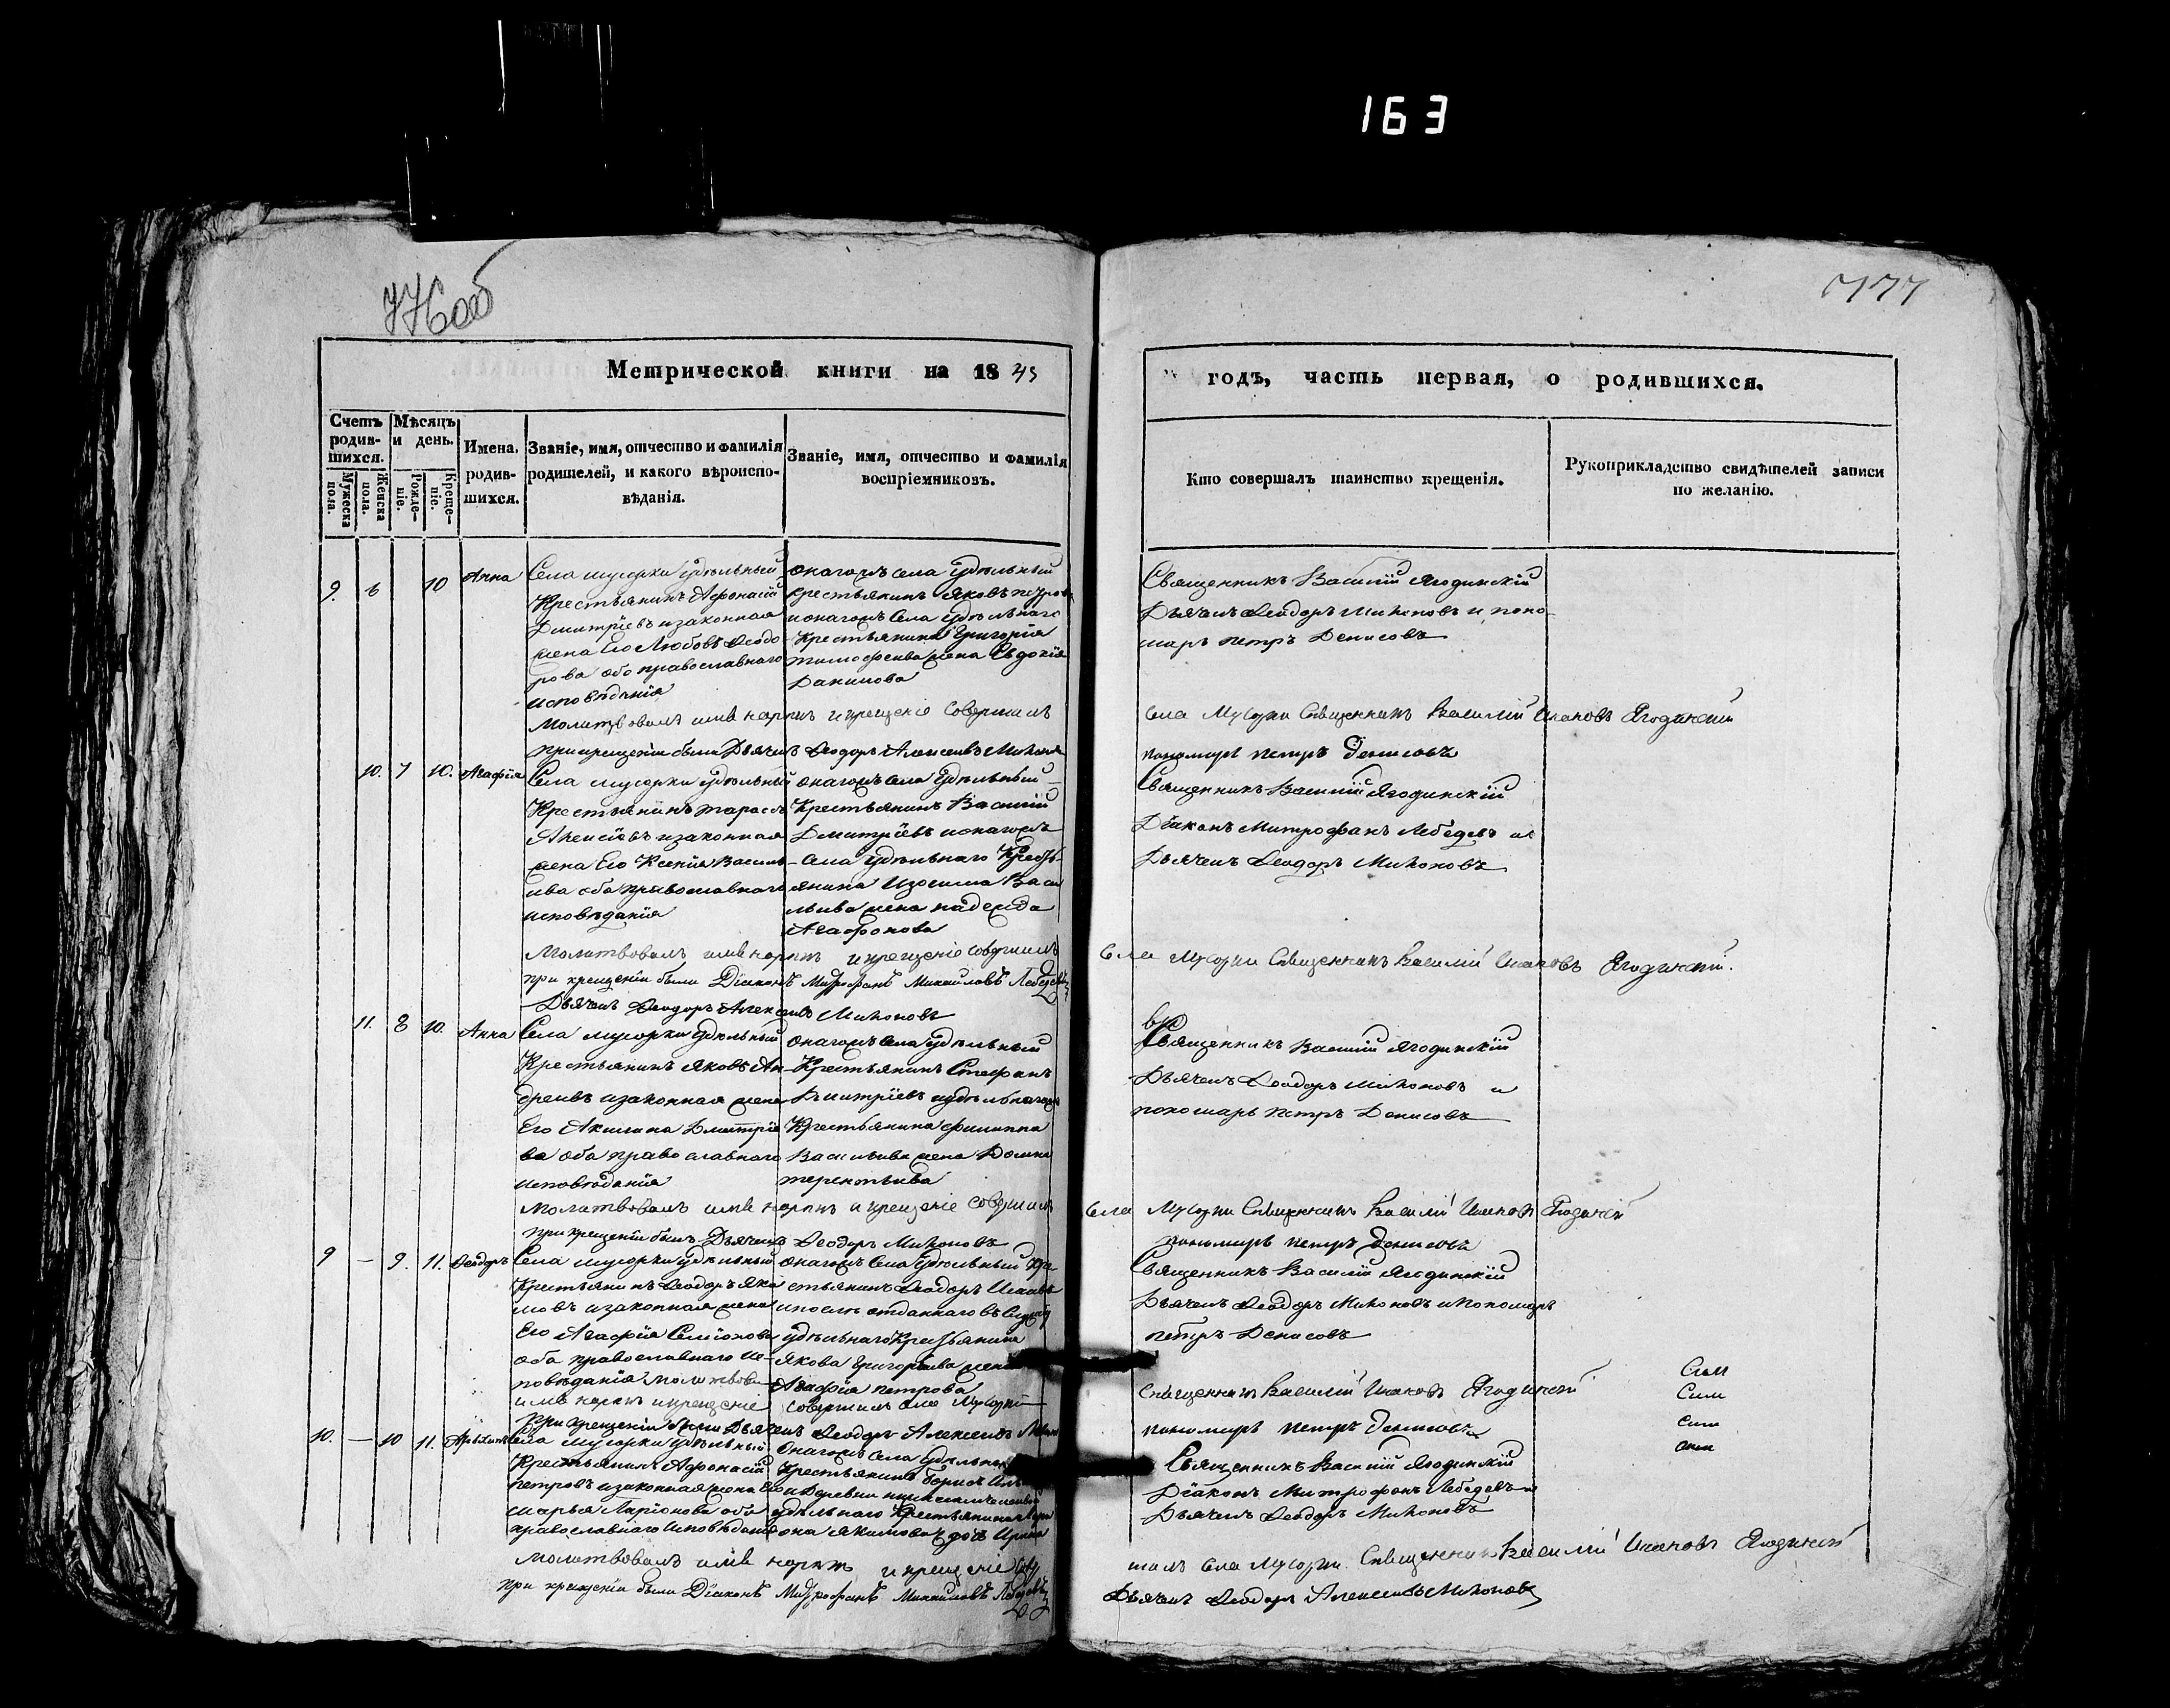 163
776об
777
Метрической книги на 1845
годъ, часть первая, о родившихся.
Счетъ родившихся.
Мужеска пола.
Женска пола.
Мѣсяцъ и день.
Рожденіе.
Крещеніе.
Имена родившихся.
Званіе, имя, отчество и фамилія
родителей, и какого вѣроиспо-
вѣданія.
Званіе, имя, отчество и фамилія
воспріемниковъ.
Кто совершалъ таинство крещенія.
Рукоприкладство свидѣтелей записи
по желанію.
9. 6 10 Анна
Села мусорки удѣльный
Крестьянинъ Афонасій
Дмитріевъ изаконная
жена Его Любовь Ѳеодо
рова обо православнаго
исповѣданія
онагожъ села удѣльный
крестьянинъ Яковъ петровъ
ионагожъ Села удѣльнаго
Крестьянина Григорія
тимофеива жена Евдокія
Данилова
Священникъ Василій Ягодинскій
Дьячекъ Ѳеодоръ Михоновъ и поно-
марь петръ Денисовъ
Молитвовалъ имя нарекъ и крещеніе Совершилъ
села Мусорки Священникъ Василій Ивановъ Ягодинскій
при крещеніи были Дьячекъ Ѳеодоръ Алексеивъ Михонов
пономарь петръ Денисовъ
10. 7 10. Агафія
Села мусорки удѣльный
Крестьянинъ тарасъ
изаконная
жена Его Ксенія Василь-
ива оба православнаго
исповѣданія
онагожъ Села удѣльный
Крестьянинъ Василій
Дмитріевъ ионагожъ
Села удѣльнаго Кресть-
янина Изосима Васи
льива жена надежда
Агафонова
Священникъ Василій Ягодинскій
Діаконъ Митрофанъ Лебедевъ и
Дьячекъ Ѳеодоръ Михоновъ
Молитвовалъ имя нарекъ и крещеніе совершилъ
Села Мусорки Священникъ Василій Ивановъ Ягодинскій.
при крещеніи были Діаконъ Митрофанъ Михайловъ Лебедевъ
Дьячекъ Ѳеодоръ Алексеивъ Михоновъ
11. 8 10. Анна
Села мусорки удѣльный
Крестьянинъ Яковъ Ан-
дреивъ изаконная жена
Его Акилина Дмитріе
ва оба православнаго
исповѣданія
онагожъ Села удѣльный
Крестьянинъ Стефанъ
Дмитріевъ иудѣльнагожъ
Крестьянина филиппа
Васильива жена Домна
терентьива
Священникъ Василій Ягодинскій
Дьячекъ Ѳеодоръ Михоновъ и
пономарь петръ Денисовъ
Молитвовалъ имя нарекъ и крещеніе совершилъ
села Мусорки Священникъ Василій Ивановъ Ягодинскій
при крещеніи былъ Дьячекъ Ѳеодоръ Михоновъ
пономарь петръ Денисовъ
9 — 9. 11. Ѳеодоръ
Села мусорки удѣльный
Крестьянинъ Ѳеодоръ Яки
мовъ изаконная жена
Его Агафія Семіонова
оба православнаго ис-
повѣданія молитвовалъ
имя нарекъ и крещеніе
онагожъ Села удѣльный кре-
стьянинъ Ѳеодоръ Исаивъ
отданнаго въ Службу
удѣльнаго Крестьянина
Якова Григорьива жена
Агафія петрова
совершилъ села Мусорки
Священникъ Василій Ягодинскій
Дьячекъ Ѳеодоръ Михоновъ и пономарь
петръ Денисовъ
Священникъ Василій Ивановъ Ягодинскій
при крещеніи были Дьячекъ Ѳеодоръ Алексеивъ
пономарь петръ Денисовъ
10. — 10 11.
Села мусорки удѣльный
Крестьянинъ Афонасій
петровъ изаконная жена Его
марья Ларіонова оба
православнаго исповѣданія
онагожъ села удѣльный
Крестьянинъ Борисъ
удѣльнаго Крестьянина
она Якимова дочь Ирина
Священникъ Василій Ягодинскій
Діаконъ Митрофанъ Лебедевъ и
Дьячекъ Ѳеодоръ Михоновъ
Молитвовалъ имя нарекъ и крещеніе совер
шилъ села Мусорки Священникъ Василій Ивановъ Ягодинскій
при крещеніи были Діаконъ Митрофанъ Михайловъ Лебедевъ
Дьячекъ Ѳеодоръ Алексеивъ Михоновъ